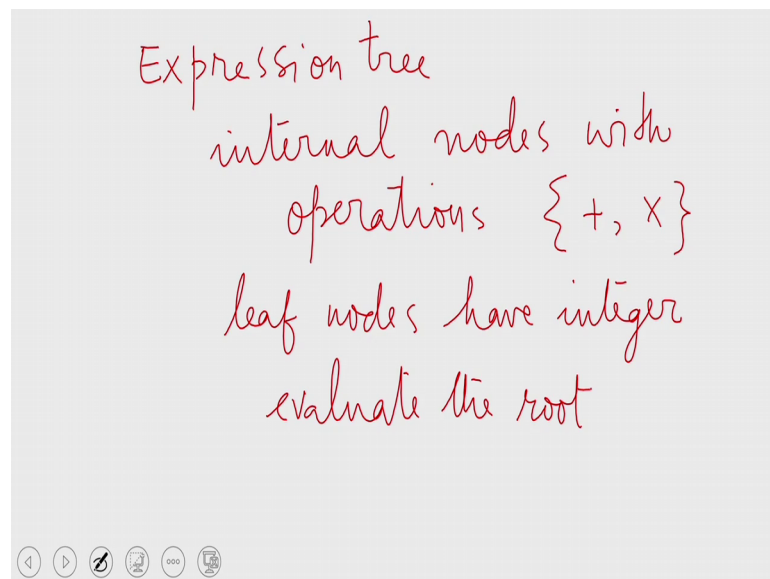 Expression tree
internal nodes with
operations {+, x}
leaf nodes have integer
evaluate the root